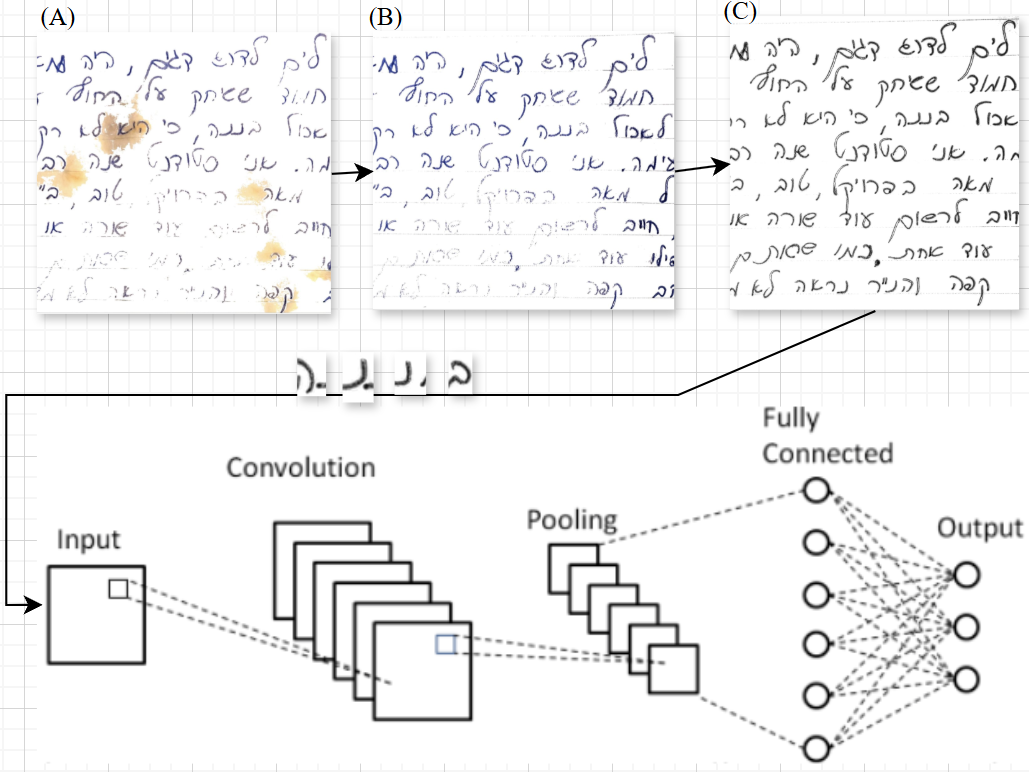 (A)
לים לדוג דגים, היה
חמוד ששיחק על החוף
אכול בננה, כי היא לא רק
מה. אני סטודנט שנה רב
מאה בפרויקט טוב, ב"
חייב לרשום עוד שורה או
קפה נראה לא מ
(B)
לים לדוג דגים, היה
חמוד ששיחק על החוף
לאכול בננה, כי היא לא רק
עימה. אני סטודנט שנה רב
ל מאה בפרויקט טוב, ב"
חייב לרשום עוד שורה או
פילו עוד אחת, כמו ששמת
קפה והנייר נראה לא מ
(C)
לים לדוג דגים, היה
חמוד ששיחק על החוף
אכול בננה, כי היא לא רק
מה. אני סטודנט שנה רב
מאה בפרויקט טוב, ב
חייב לרשום עוד שורה או
עוד אחת, כמו
קפה והנייר נראה לא מ
ב נ. נ. ה.
Input
Convolution
Pooling
Fully
Connected
Output